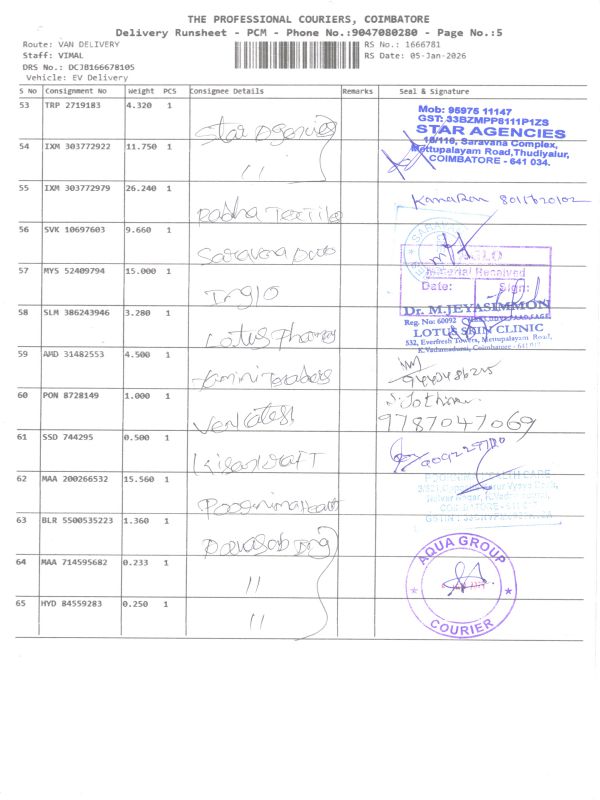 THE PROFESSIONAL COURIERS, COIMBATORE
Delivery Runsheet - PCM - Phone No.:9047080280 - Page No.:5
Route: VAN DELIVERY
RS No.: 1666781
Staff: VIMAL
RS Date: 05-Jan-2026
DRS No.: DCJB166678105
Vehicle: EV Delivery
S No Consignment No Weight PCS Consignee Details Remarks Seal & Signature
53 TRP 2719183 4.320 1 Star Agencies
Mob: 95975 11147
GST: 33BZMPP8111P1ZS
STAR AGENCIES
18/116, Saravana Complex,
Mettupalayam Road, Thudiyalur,
COIMBATORE - 641 034.
54 IXM 303772922 11.750 1 "
55 IXM 303772979 26.240 1 Textile
56 SVK 10697603 9.660 1 Saravana
57 MYS 52409794 15.000 1 Inglo
Material Received
Date: Sign:
58 SLM 386243946 3.280 1 Lotus
Dr. M.JEYASIMMON
Reg. No: 60092
LOTUS SKIN CLINIC
532, Everfresh Towers, Mettupalayam Road,
K.Vadamadurai, Coimbatore - 641 017
59 AMD 31482553 4.500 1
60 PON 8728149 1.000 1 Venkatesh
9787047069
61 SSD 744295 0.500 1 Kisan Kraft
62 MAA 200266532 15.560 1 Poornima
HEALTH CARE
63 BLR 5500535223 1.360 1
64 MAA 714595682 0.233 1 "
AQUA GROUP
COURIER
65 HYD 84559283 0.250 1 "